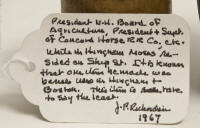 President N.H. Board of
Agriculture, President & Supt.
of Concord Horse R.R. Co., etc.
While in Hingham Moses re-
sided on Ship St. It is known
that one item he made was
buckets used in Hingham to
Boston. This item is rare
to say the least.
J.P. Richardson
1967